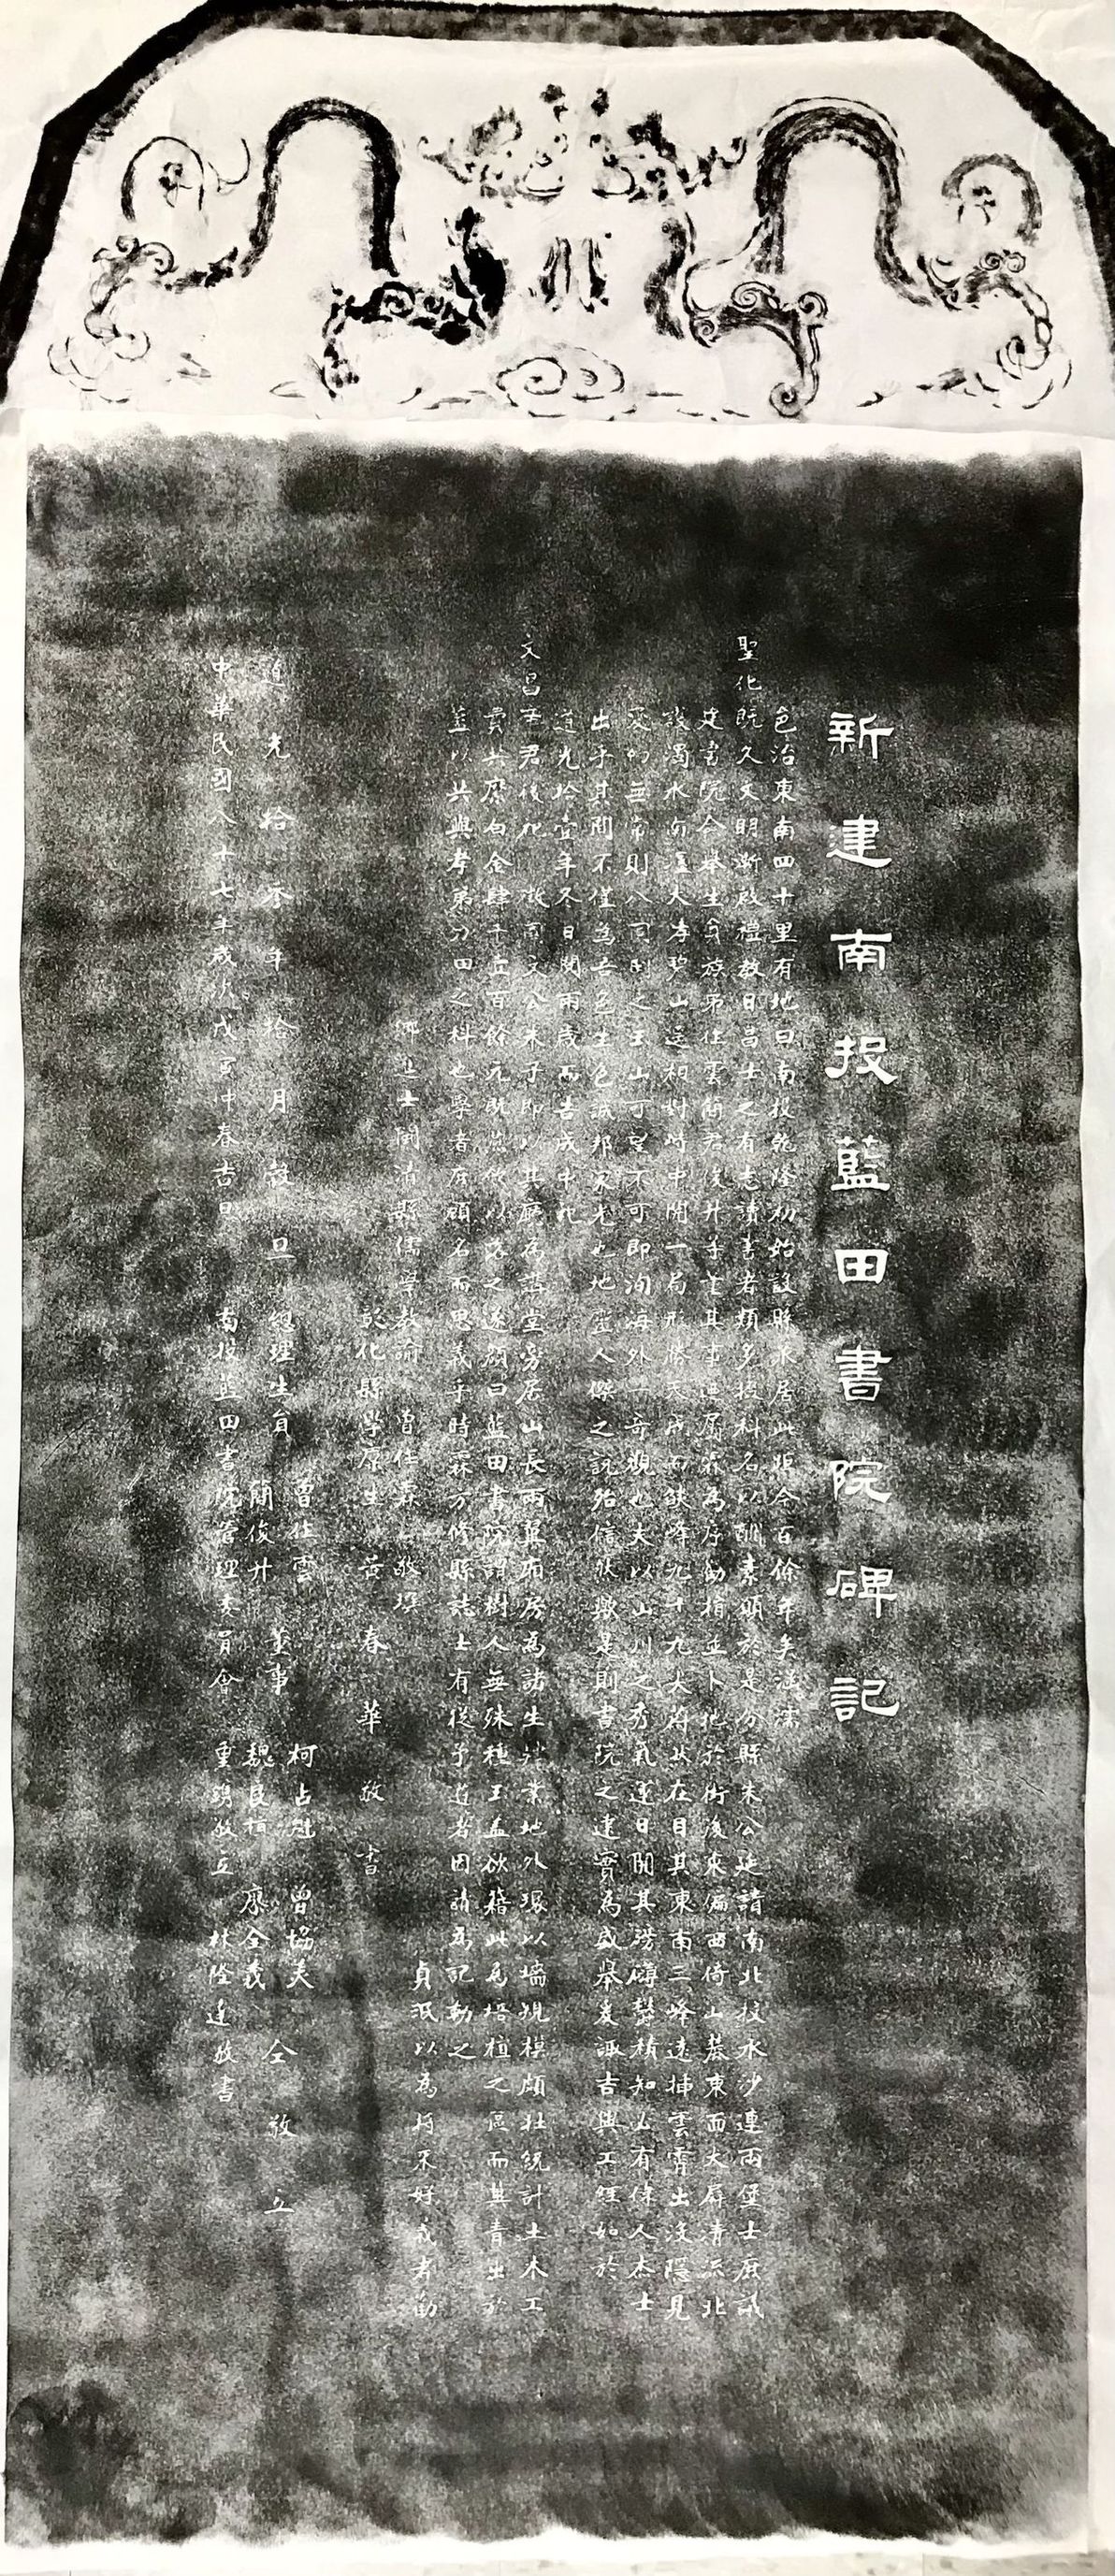 新建南投藍田書院碑記
邑治東南四十里有地曰南投乾隆初始設縣丞居此距今百餘年矣涵濡
聖化既久文明漸啟禮教日昌士之有志讀書者類多掇科名以酬素願於是分縣朱公延請南北投水沙連兩堡士庶議
建書院僉舉生員族弟作雲簡君俊升等董其事並屬霖為序勸捐並卜地於街後東偏西倚山麓東面大屏清流北
護濁水南瀠大孝碧山遠相對峙中開一局形勝天成而燄峰九十九尖蔚然在目其東南三峰遠插雲霄出沒隱見
變幻無常則八同關之玉山可望不可即洵海外一奇觀也夫以山川之秀氣運日開其磅礴鬱積知必有偉人杰士
出乎其間不僅為吾邑生色誠邦家光也地靈人傑之說殆信然歟是則書院之建實為盛舉爰諏吉興工經始於
道光拾壹年冬日閱兩歲而告成中祀
文昌帝君後祀徽國文公朱子即以其廳為講堂旁居山長兩翼廂房為諸生肄業地外環以墻規模頗壯統計土木工
費共縻白金肆千五百餘元既燕飲以落之遂顏曰藍田書院謂樹人無殊種玉蓋欲藉此為培植之區而其青出於
藍以共與孝弟力田之科也學者庶顧名而思義乎時霖方修縣誌士有從予遊者因請為記勒之
貞珉以為將來好義者勸
鄉進士閩清縣儒學教諭曾作霖敬撰
彰化縣學廩生黃春華敬書
道光拾參年拾月穀旦 總理生員 曾作雲 簡俊升 董事 柯占魁 魏民恒 曾協夫 廖全義 仝敬立
中華民國八十七年歲次戊寅仲春吉旦 南投藍田書院管理委員會 重鐫敬立 林隆達敬書